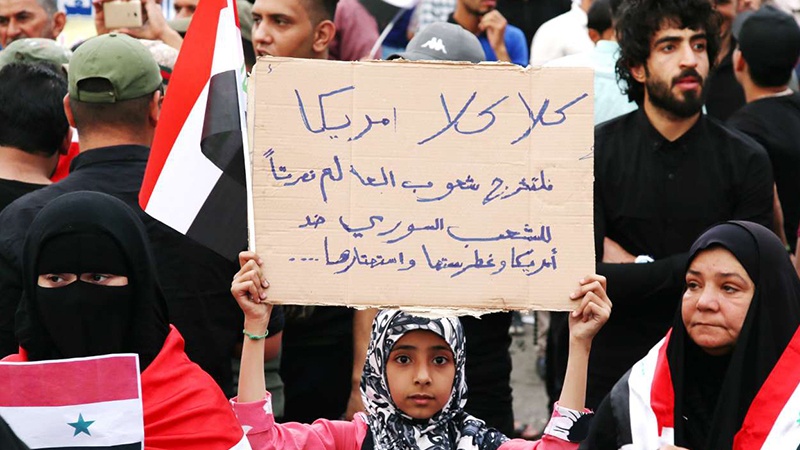 كلا كلا امريكا
فلتخرج شعوب العالم نصرتاً
للشعب السوري ضد
أمريكا وغطرستها واستهتارها....